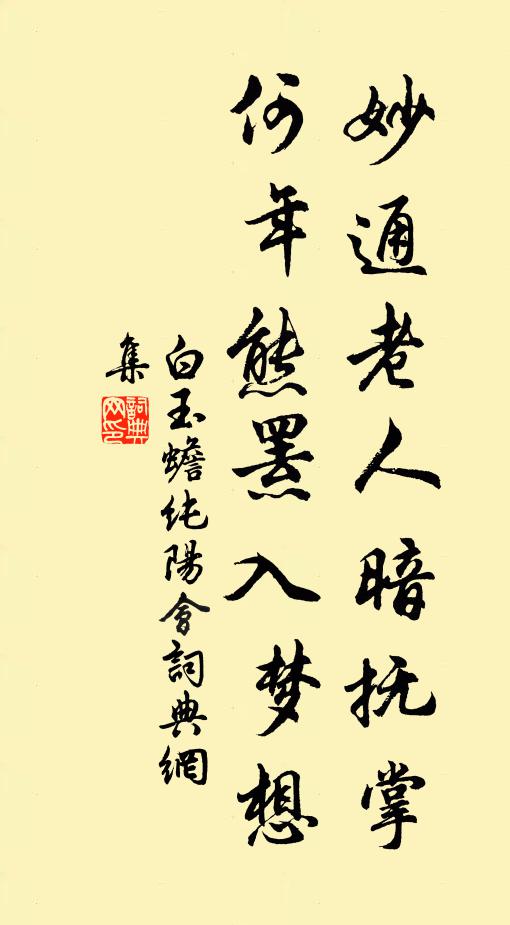 妙通老人暗抚掌
何年熊罴入梦想
白玉蟾纯陽會詞典網
集
詞典网印